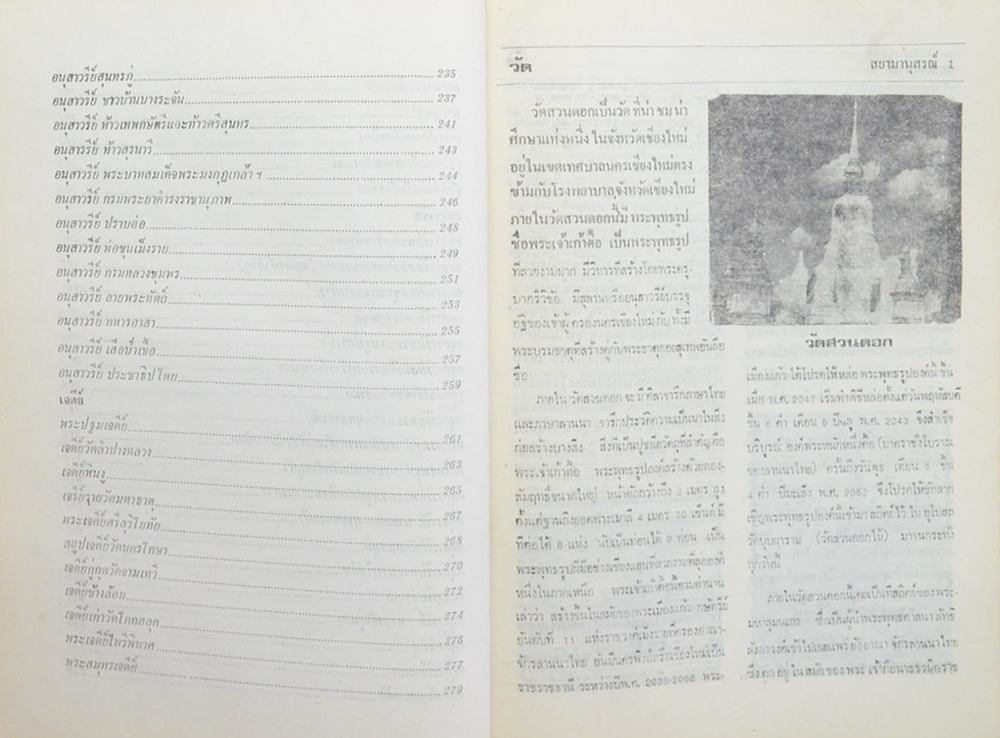 อนุสาวรีย์สุนทรภู่ 235
อนุสาวรีย์ ชาวบ้านบางระจัน 237
อนุสาวรีย์ ท้าวเทพกษัตรีและท้าวศรีสุนทร 241
อนุสาวรีย์ ท้าวสุรนารี 243
อนุสาวรีย์ พระบาทสมเด็จพระมงกุฎเกล้า ฯ 244
อนุสาวรีย์ กรมพระยาดำรงราชานุภาพ 246
อนุสาวรีย์ ปราบฮ่อ 248
อนุสาวรีย์ พ่อขุนเม็งราย 249
อนุสาวรีย์ กรมหลวงชุมพร 251
อนุสาวรีย์ ลายพระหัตถ์ 253
อนุสาวรีย์ ทหารอาสา 255
อนุสาวรีย์ เสือป่าเชื้อ 257
อนุสาวรีย์ ประชาธิปไตย 259
เจดีย์
พระปฐมเจดีย์ 261
เจดีย์วัดลำปางหลวง 263
เจดีย์หินงู 265
เจดีย์รายวัดมหาธาตุ 267
พระเจดีย์ศรีสุริโยทัย 268
สถูปเจดีย์วัดนครโกษา 270
เจดีย์กู่กุดวัดจามเทวี 272
เจดีย์ช้างล้อม 274
เจดีย์เก่าวัดโกกสลุด 276
พระเจดีย์ไพรีพินาศ 277
พระสมุทรเจดีย์ 279
วัด
สยามานุสรณ์ 1
วัดสวนดอกเป็นวัด ที่น่า ชม น่า
ศึกษาแห่งหนึ่ง ในจังหวัดเชียงใหม่
อยู่ในเขตเทศบาลนครเชียงใหม่ตรง
ข้ามกับโรงพยาบาลจังหวัดเชียงใหม่
ภายในวัดสวนดอกนี้มี พระพุทธรูป
ชื่อพระเจ้าเก้าตื้อ เป็นพระพุทธรูป
ที่สวยงามมาก มีวิหารที่สร้างโดยพระครู
บาศรีวิชัย มีสุสานหรืออนุสาวรีย์บรรจุ
อัฐิของเจ้าผู้ ครองนครเชียงใหม่ กับ ทั้งมี
พระบรมธาตุที่สร้างคู่กับพระธาตุดอยสุเทพอันลือ
ชื่อ
ภายใน วัดสวนดอก จะ มี ศิลาจารึกภาษาไทย
และภาษาลานนา จารึกประวัติความเป็นมาในสิ่ง
ก่อสร้างบางสิ่ง สิ่งที่เป็นปูชนียวัตถุที่สำคัญคือ
พระเจ้าเก้าตื้อ พระพุทธรูปองค์สร้างด้วยทอง-
สัมฤทธิ์ขนาดใหญ่ หน้าตักกว้างถึง 3 เมตร สูง
ตั้งแต่ฐานถึงยอดพระเมาลี 4 เมตร 70 เซ็นต์ มี
ที่ต่อได้ 8 แห่ง นับเป็นท่อนได้ 9 ท่อน เป็น
พระพุทธรูปฝีมือช่างเชียงแสนที่สวยงามที่สุดองค์
หนึ่งในภาคเหนือ พระเจ้าเก้าตื้อนี้ตามตำนาน
เล่าว่า สร้างขึ้นในสมัยของพระเมืองแก้ว กษัตริย์
อันดับที่ 11 แห่งราชวงศ์เม็งรายที่ครองอาณา-
จักรลานนาไทย อันมีนครพิงค์หรือเชียงใหม่เป็น
ราชราชธานี ระหว่างปีพ.ศ. 2038-2068 พระ-
วัดสวนดอก
เมืองแก้ว ได้โปรดให้หล่อ พระพุทธรูปองค์นี้ ขึ้น
เมื่อ พ.ศ. 2047 เริ่มทำพิธีหล่อตั้งแต่วันพฤหัสบดี
ขึ้น 8 ค่ำ เดือน 5 ปีฉลู พ.ศ. 2043 จึงสำเร็จ
บริบูรณ์ องค์พระหนักหนึ่งตื้อ (มาตราชั่งโบราณ
ของลานนาไทย) ครั้นถึงวันพุธ เดือน 8 ขึ้น
4 ค่ำ ปีมะเส็ง พ.ศ. 2052 จึงโปรดให้ชักลาก
เชิญพระพุทธรูปองค์นี้เข้ามา สถิตย์ไว้ ใน อุโบสถ
วัดบุบผาราม (วัดสวนดอกไม้) มาจนกระทั่ง
ทุกวันนี้
ภายในวัดสวนดอกนี้เคยเป็นที่สถิตย์ของพระ-
มหาสุมนเถร ซึ่งเป็นผู้นำพระพุทธศาสนา ลัทธิ
ลังกาวงศ์เข้าไปเผยแพร่ยังอาณา จักรลานนาไทย
ซึ่ง ตก อยู่ ใน สมัย ของ พระ เจ้ากือนาธรรมิกราช